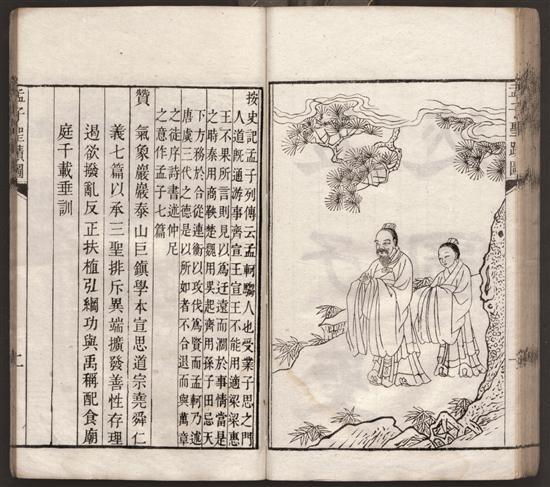 孟子聖蹟圖
按史記孟子列傳云孟軻騶人也受業子思之門
人道既通游事齊宣王宣王不能用適梁梁惠
王不果所言則見以爲迂遠而濶於事情當是
之時秦用商鞅楚魏用吳起齊用孫子田忌天
下方務於合從連衡以攻伐爲賢而孟軻乃述
唐虞三代之德是以所如者不合退而與萬章
之徒序詩書述仲尼
之意作孟子七篇
贊 氣象巖巖泰山巨鎮學本宣思道宗堯舜仁
義七篇以承三聖排斥異端擴發善性存理
遏欲撥亂反正扶植引綱功與禹稱配食廟
庭千載垂訓
孟子聖蹟圖